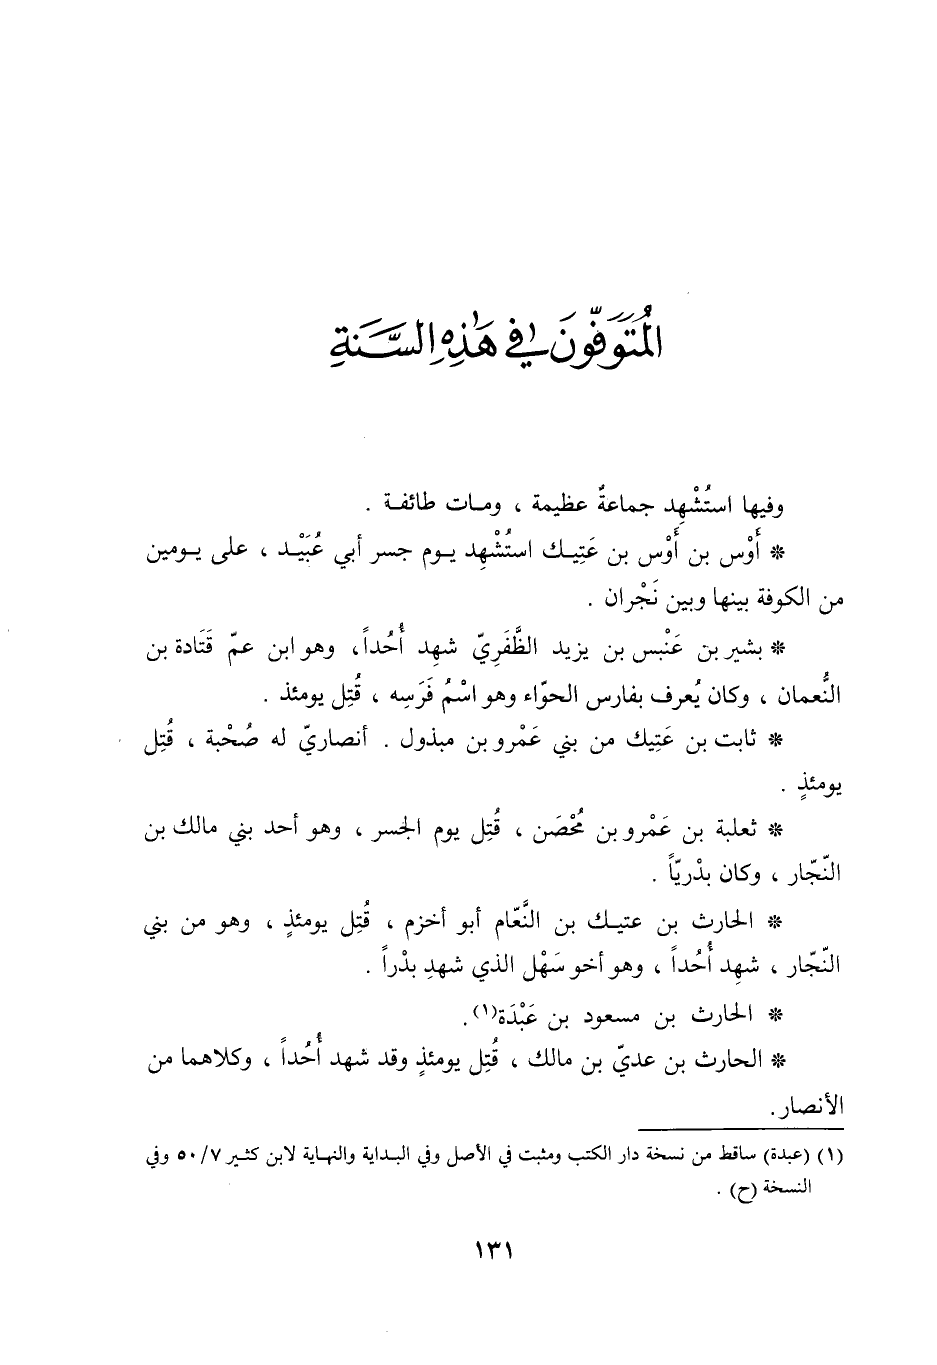 المُتَوَفَّونَ في هَذِهِ السَّنَةِ
وفيها استُشْهِد جماعةٌ عظيمة ، ومات طائفة .
* أَوْس بن أَوْس بن عَتِيك استُشْهِد يوم جسر أبي عُبَيْد ، على يومين
من الكوفة بينها وبين نَجْران .
* بشير بن عَنْبس بن يزيد الظَّفَرِيّ شهِد أُحُداً، وهو ابن عمّ قَتَادة بن
النُّعمان ، وكان يُعرف بفارس الحوّاء وهو اسْمُ فَرَسِه ، قُتِل يومئذ .
* ثابت بن عَتِيك من بني عَمْرو بن مبذول . أنصاريّ له صُحْبة ، قُتِل
يومئذٍ .
* ثعلبة بن عَمْرو بن مُحْصَن ، قُتِل يوم الجسر ، وهو أحد بني مالك بن
النّجّار ، وكان بدْريّاً .
* الحارث بن عتيك بن النَّعّام أبو أخزم ، قُتِل يومئذٍ ، وهو من بني
النّجّار ، شهِد أُحُداً ، وهو أخو سَهْل الذي شهِد بدْراً .
* الحارث بن مسعود بن عَبْدَة(١).
* الحارث بن عديّ بن مالك ، قُتِل يومئذٍ وقد شهد أُحُداً ، وكلاهما من
الأنصار.
(١) (عبدة) ساقط من نسخة دار الكتب ومثبت في الأصل وفي البداية والنهاية لابن كثير ٥٠/٧ وفي
النسخة (ح) .
١٣١